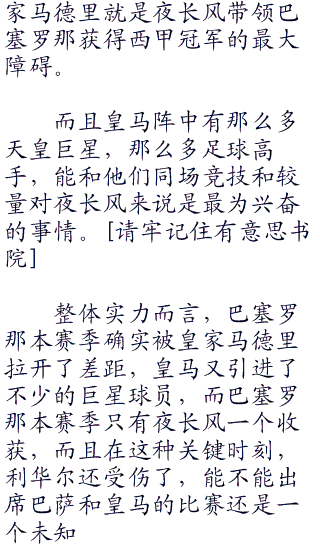 家马德里就是夜长风带领巴
塞罗那获得西甲冠军的最大
障碍。
而且皇马阵中有那么多
天皇巨星，那么多足球高
手，能和他们同场竞技和较
量对夜长风来说是最为兴奋
的事情。[请牢记住有意思书
院]
整体实力而言，巴塞罗
那本赛季确实被皇家马德里
拉开了差距，皇马又引进了
不少的巨星球员，而巴塞罗
那本赛季只有夜长风一个收
获，而且在这种关键时刻，
利华尔还受伤了，能不能出
席巴萨和皇马的比赛还是一
个未知